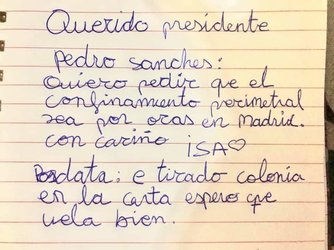 Querido presidente
Pedro sanches:
Quiero pedir que el
confinamiento perimetral
sea por oras en Madrid.
con cariño ISA♡
Posdata: e tirado colonia
en la carta espero que
uela bien.